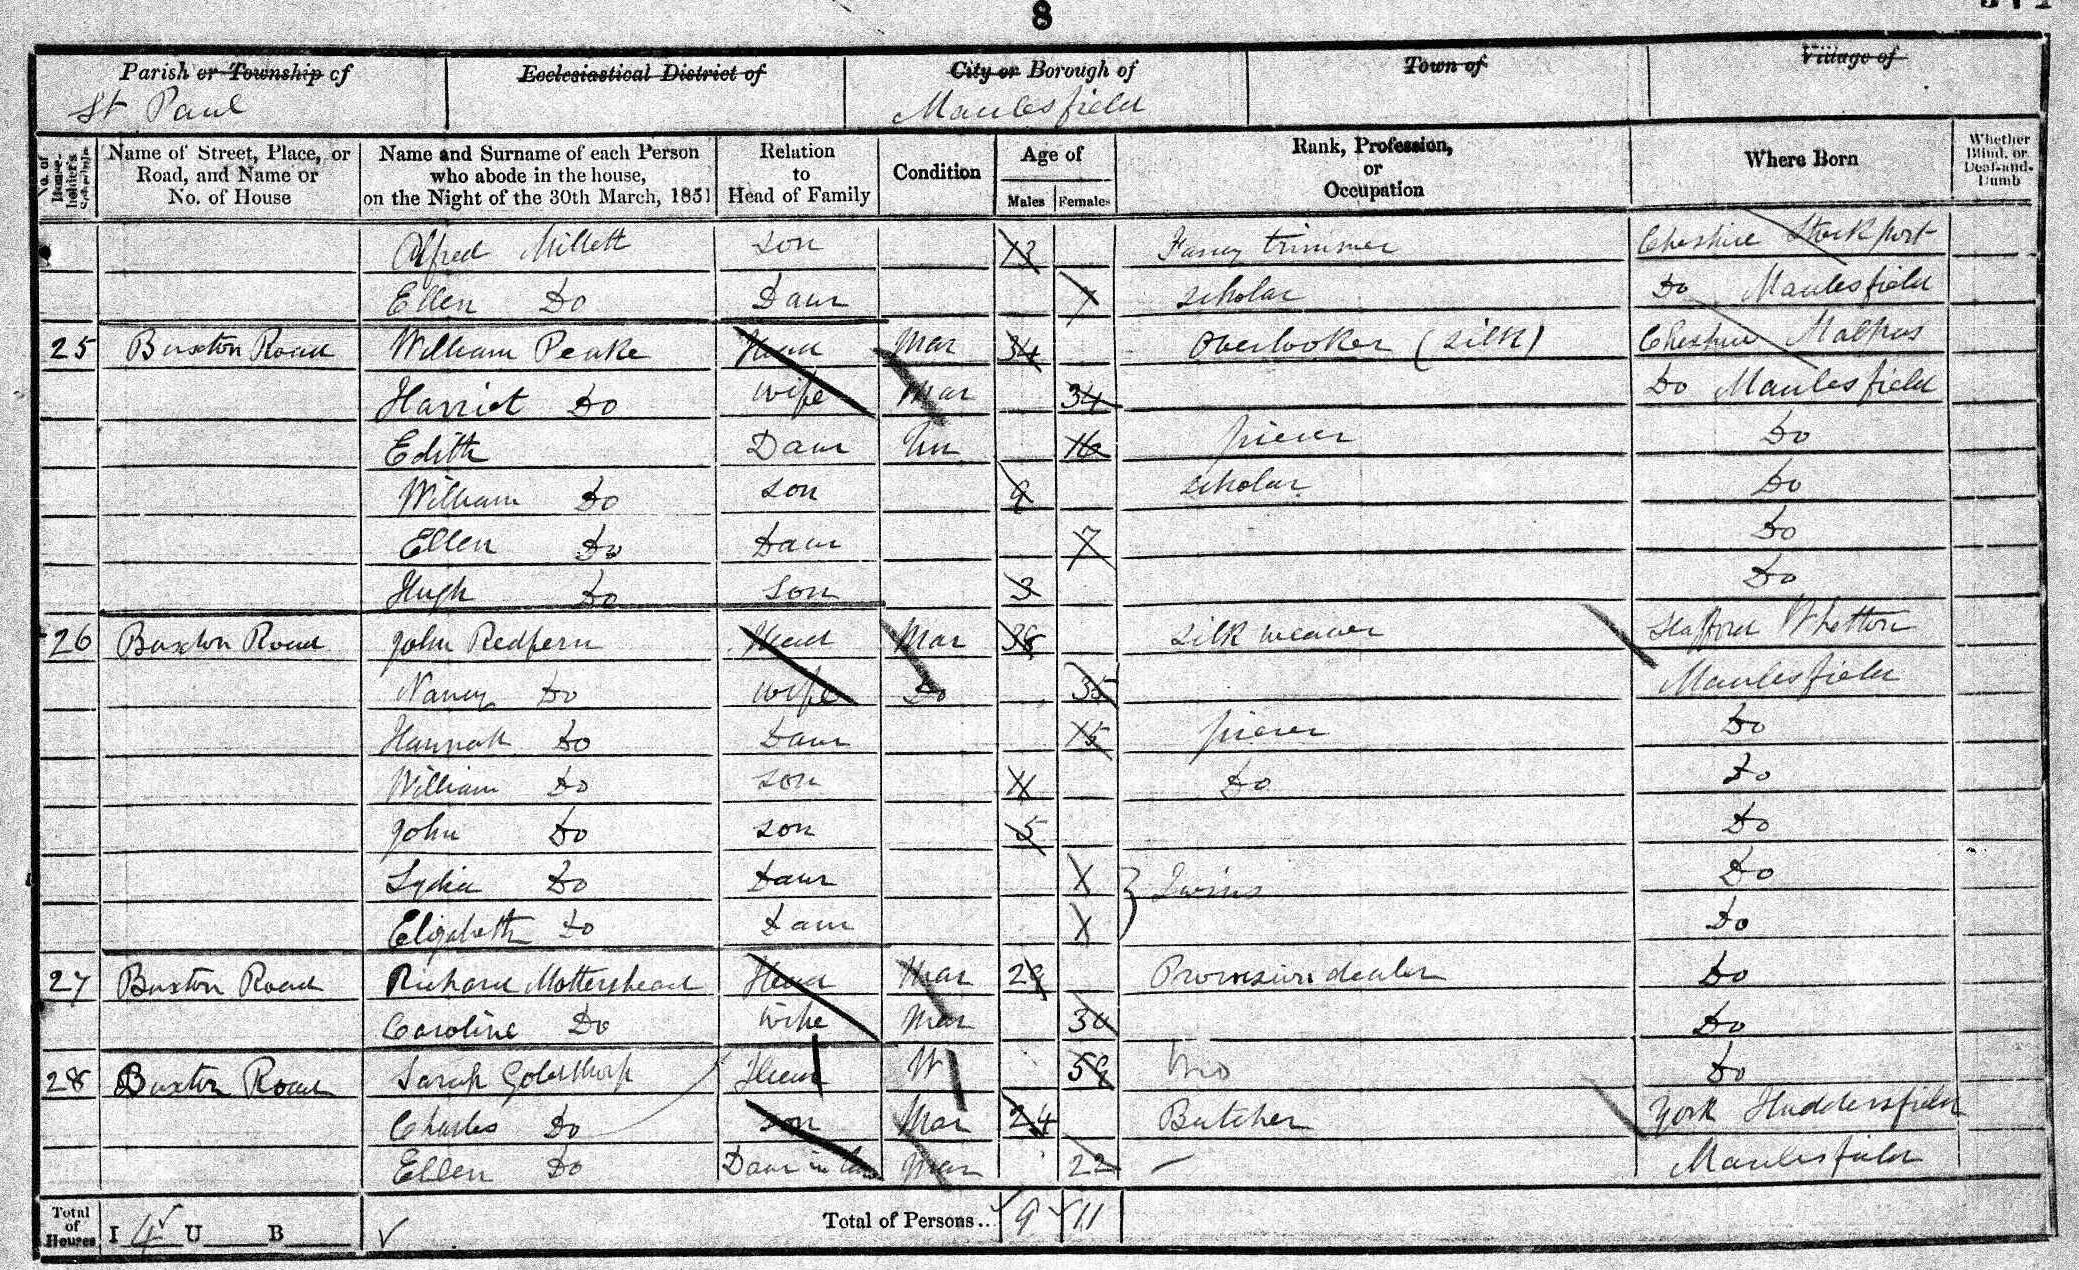 8
Parish or Township of Ecclesiastical District of City or Borough of Town of Village of
St Paul Macclesfield
No. of House-holder's Schedule Name of Street, Place, or Road, and Name or No. of House Name and Surname of each Person who abode in the house, on the Night of the 30th March, 1851 Relation to Head of Family Condition Age of Males Females Rank, Profession, or Occupation Where Born Whether Blind, or Deaf-and-Dumb
Alfred Millett son 13 Fancy trimmer Cheshire Stockport
Ellen Do Daur 7 scholar Do Macclesfield
25 Buxton Road William Peake Head Mar 34 Overlooker (silk) Cheshire Malpas
Harriet Do wife Mar 34 Do Macclesfield
Edith Daur Un 16 piecer Do
William Do son 9 scholar Do
Ellen Do Daur 7 Do
Hugh Do son 3 Do
26 Buxton Road John Redfern Head Mar 38 silk weaver Stafford Whetton
Nancy Do wife Do 35 Macclesfield
Hannah Do Daur 15 piecer Do
William Do son 11 Do Do
John Do son 5 Do
Lydia Do Daur 1 } Twins Do
Elizabeth Do Daur 1 Do
27 Buxton Road Richard Mottershead Head Mar 29 Provision dealer Do
Caroline Do wife Mar 30 Do
28 Buxton Road Sarah Goldthorp Head W 59 Do
Charles Do son Mar 24 Butcher York Huddersfield
Ellen Do Daur in law Mar 22 – Macclesfield
Total of Houses I 4 U B Total of Persons.. 9 11